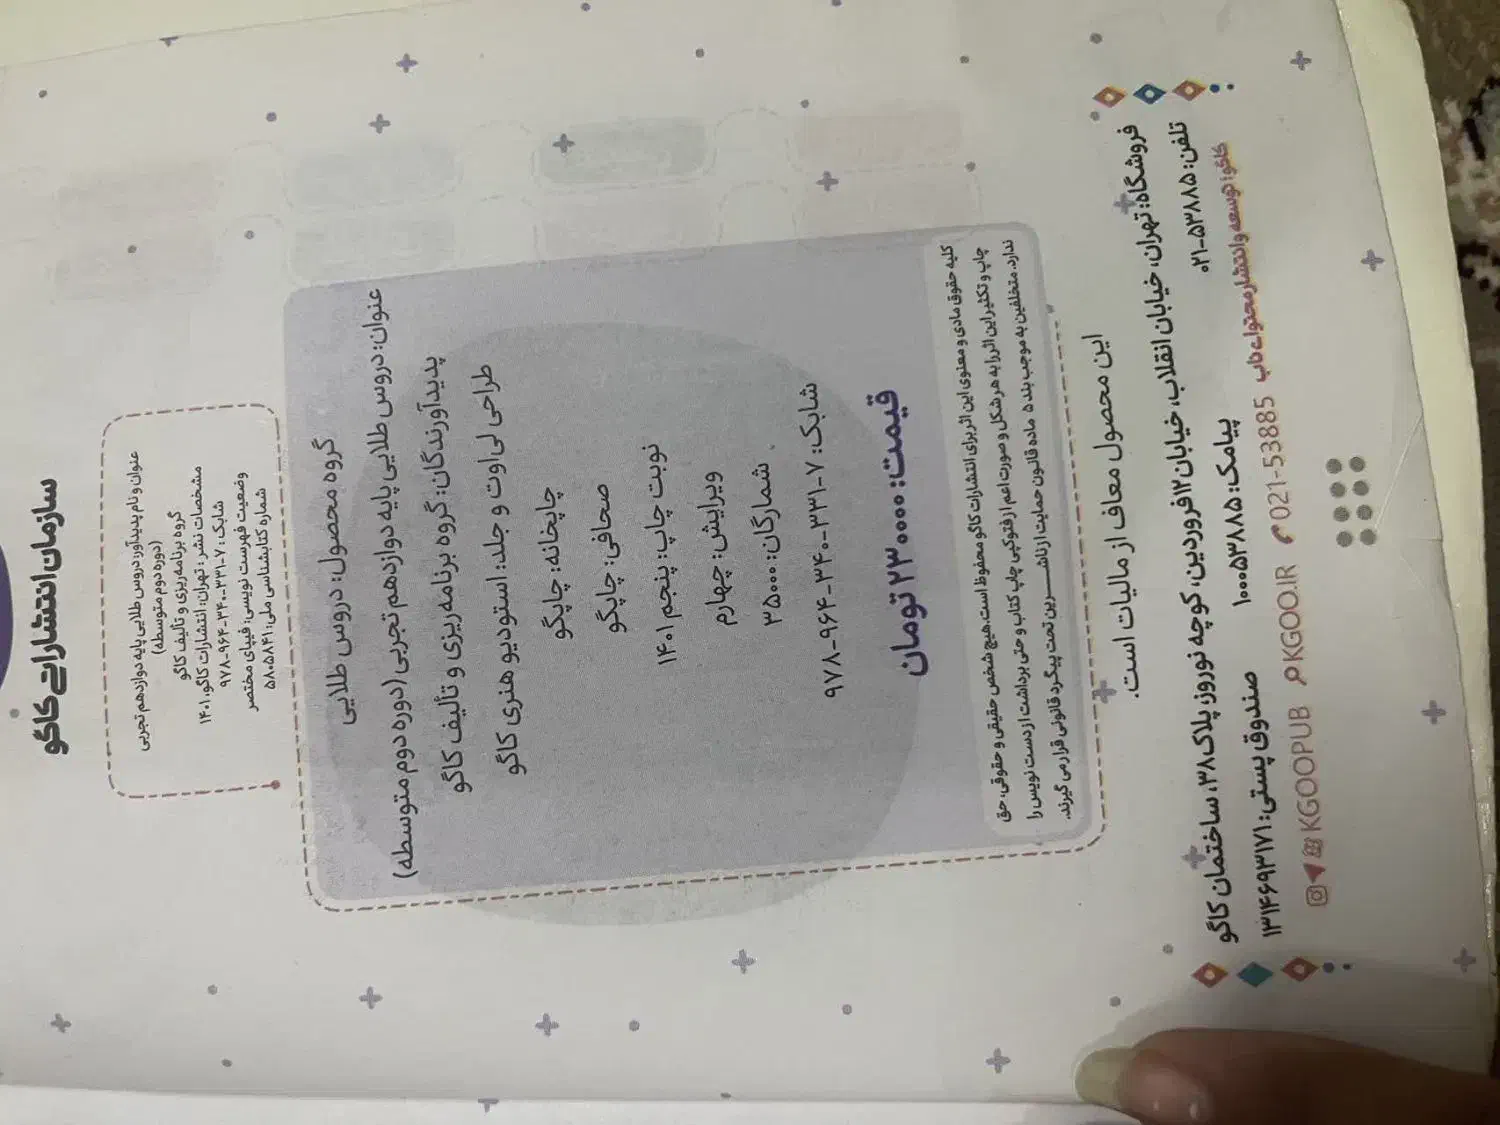 سازمان انتشاراتی کاگو
عنوان و نام پدیدآور: دروس طلایی پایه دوازدهم تجربی
(دوره دوم متوسطه)
گروه برنامه‌ریزی و تألیف کاگو
مشخصات نشر: تهران: انتشارات کاگو، ۱۴۰۱
شابک: ۷-۳۳۱-۳۴۰-۹۶۴-۹۷۸
وضعیت فهرست نویسی: فیپای مختصر
شماره کتابشناسی ملی: ۵۸۰۵۸۴۱
گروه محصول: دروس طلایی
عنوان: دروس طلایی پایه دوازدهم تجربی (دوره دوم متوسطه)
پدیدآورندگان: گروه برنامه‌ریزی و تألیف کاگو
طراحی لی‌اوت و جلد: استودیو هنری کاگو
چاپخانه: چاپگو
صحافی: چاپگو
نوبت چاپ: پنجم ۱۴۰۱
ویرایش: چهارم
شمارگان: ۳۵۰۰۰
شابک: ۷-۳۳۱-۳۴۰-۹۶۴-۹۷۸
قیمت: ۲۳۰۰۰۰ تومان
کلیه حقوق مادی و معنوی این اثر برای انتشارات کاگو محفوظ است. هیچ شخص حقیقی و حقوقی، حق
چاپ و تکثیر این اثر را به هر شکل و صورت اعم از فتوکپی، چاپ کتاب و حتی برداشت از دست نویس را
ندارد. متخلفین به موجب بند ۵ ماده قانون حمایت از ناشـــرین تحت پیگرد قانونی قرار می گیرند.
این محصول معاف از مالیات است.
فروشگاه: تهران، خیابان انقلاب، خیابان ۱۲ فروردین، کوچه نوروز، پلاک ۳۸، ساختمان کاگو
تلفن: ۵۳۸۸۵-۰۲۱ پیامک: ۱۰۰۰۵۳۸۸۵ صندوق پستی: ۱۳۱۴۶۹۳۱۷۱
کاگو؛ توسعه و انتشار محتوای ناب
KGOOPUB KGOO.IR 021-53885